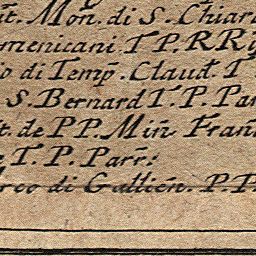 Mon. di S. Chiar
menicani T P. RR
o di Temp. Claud. T
S. Bernard T. P. Par
t. de PP. Min. Fran
T. P. Parr:
rco di Gallien. P. P